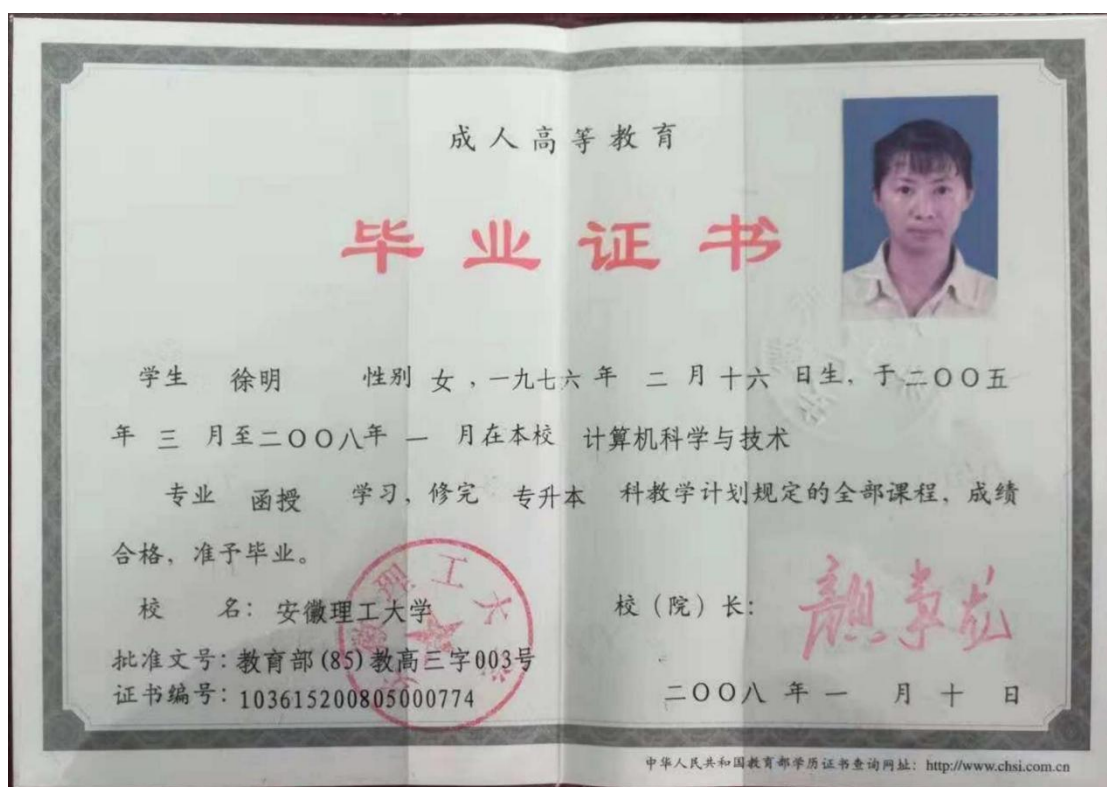 成人高等教育
毕业证书
学生 徐明 性别 女，一九七六年 二 月十六 日生，于二〇〇五
年 三 月至二〇〇八年 一 月在本校 计算机科学与技术
专业 函授 学习，修完 专升本 科教学计划规定的全部课程，成绩
合格，准予毕业。
校 名：安徽理工大学
校（院）长：
批准文号：教育部(85)教高三字003号
证书编号：103615200805000774
二〇〇八 年 一 月 十 日
中华人民共和国教育部学历证书查询网址：http://www.chsi.com.cn